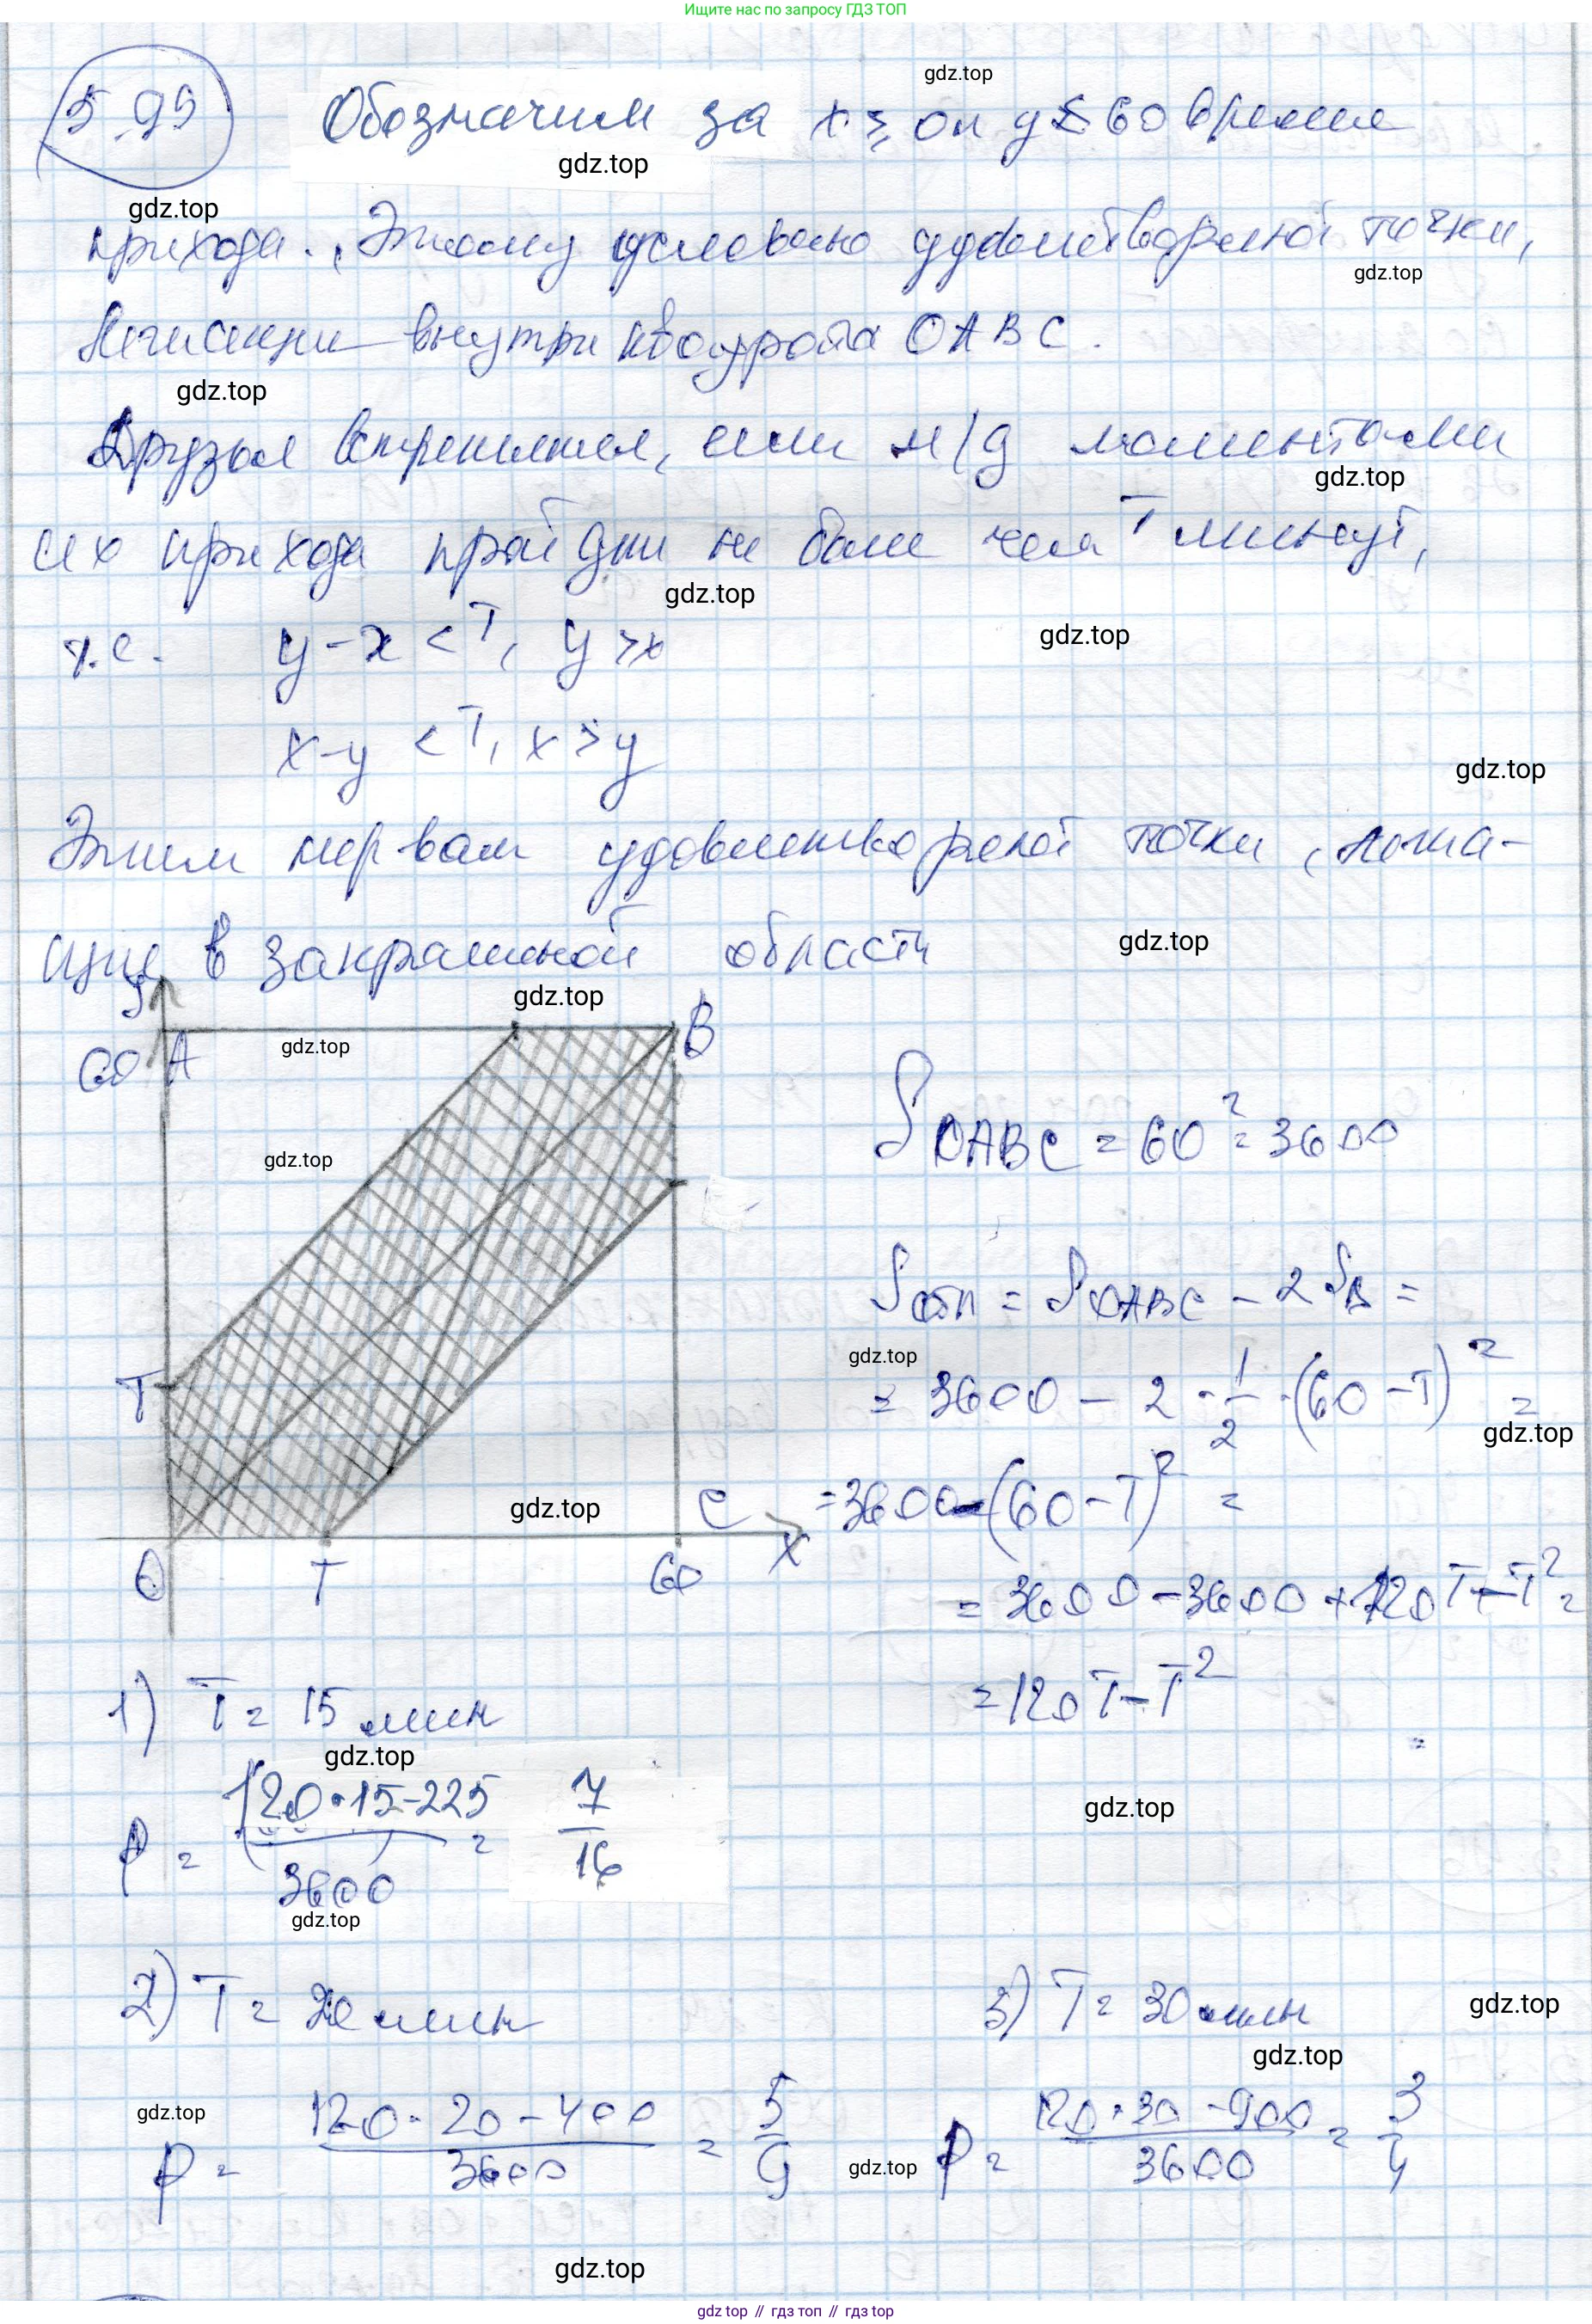 Ищите нас по запросу ГДЗ ТОП
5.99 Обозначим за x ≥ 0 и y ≤ 60 время
gdz.top
gdz.top
gdz.top
прихода. Этому условию удовлетворяют точки,
gdz.top
внутри квадрата OABC.
gdz.top
Друзья встретятся, если м/д моментами
gdz.top
их прихода пройдёт не более чем T минут,
gdz.top
т.е. y - x < T, y > x
gdz.top
x - y < T, x > y
gdz.top
Этим нер-вам удовлетворяют точки, лежа-
щие в закрашенной области
gdz.top
gdz.top
y
60 A B
gdz.top
S OABC = 60² = 3600
gdz.top
S обл = S OABC - 2 S△ =
gdz.top
T
= 3600 - 2 · 1/2 · (60 - T)² =
gdz.top
C = 3600 - (60 - T)² =
gdz.top
O T 60 x
= 3600 - 3600 + 120T - T² =
= 120T - T²
1) T = 15 мин
gdz.top
p = (120 · 15 - 225)/3600 = 7/16
gdz.top
gdz.top
2) T = 20 мин 3) T = 30 мин
gdz.top
gdz.top
p = (120 · 20 - 400)/3600 = 5/9 p = (120 · 30 - 900)/3600 = 3/4
gdz.top
gdz.top
gdz.top
gdz top // гдз топ // гдз top